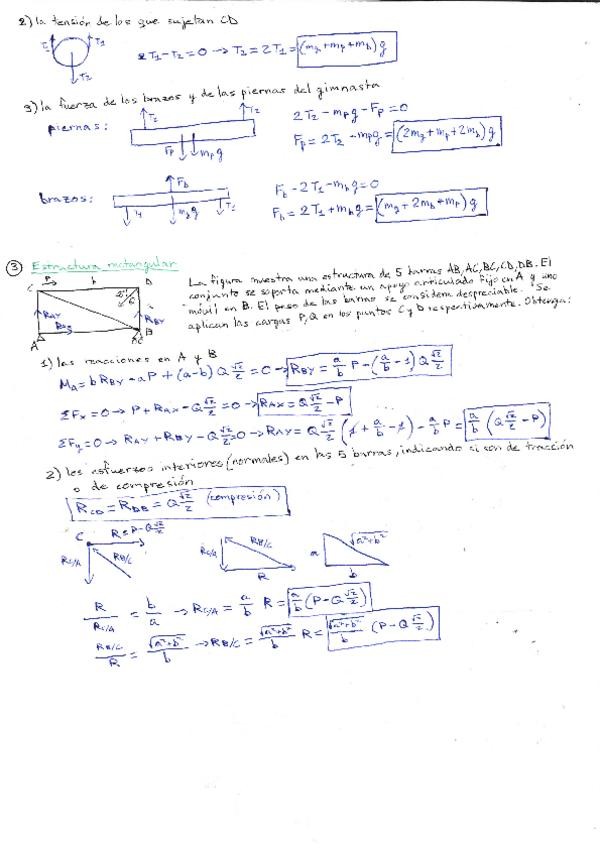 2) la tensión de los que sujetan CD
T₁ T₁
T₂
2T₁-T₂=0 → T₂=2T₁=(mg+mp+mb)g
3) la fuerza de los brazos y de las piernas del gimnasta
piernas:
T₂ T₂
Fp mpg
2T₂-mpg-Fp=0
Fp=2T₂-mpg=(2mg+mp+2mb)g
brazos:
Fb
T₁ mbg T₁
Fb-2T₁-mbg=0
Fb=2T₁+mbg=(mg+2mb+mp)g
③ Estructura rectangular
La figura muestra una estructura de 5 barras AB,AC,BC,CD,DB. El
conjunto se soporta mediante un apoyo articulado fijo en A y uno
móvil en B. El peso de las barras se considera despreciable. Se
aplican las cargas P,Q en los puntos C y D respectivamente. Obtenga:
C P b D
RAY RBY
A RAX B
1) las reacciones en A y B
MA=bRBY-aP+(a-b)Q√2/2=0→RBY=a/b P-(a/b-1)Q√2/2
ΣFx=0→P+RAX-Q√2/2=0→RAX=Q√2/2-P
ΣFy=0→RAY+RBY-Q√2/2=0→RAY=Q√2/2(1+a/b-1)-a/b P=a/b(Q√2/2-P)
2) los esfuerzos interiores (normales) en las 5 barras, indicando si son de tracción
o de compresión
RCD=RDB=Q√2/2 (compresión)
C R=P-Q√2/2
RC/A RB/C
RC/A RB/C R
a √a²+b² b
R/RC/A=b/a→RC/A=a/b R=a/b(P-Q√2/2)
RB/C/R=√a²+b²/b→RB/C=√a²+b²/b R=√a²+b²/b (P-Q√2/2)